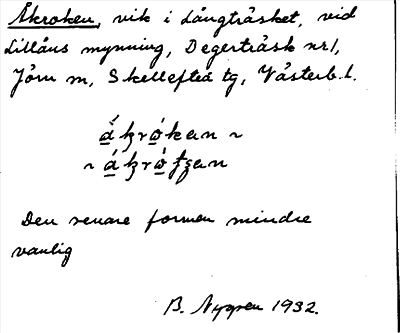 Åkroken, vik i Långträsket, vid
Lillåns mynning, Degerträsk nr 1,
Jörn sn, Skellefteå tg, Västerb. l.
ǻkró̱kan ~
~ ǻkró̱tʒan
Den senare formen mindre
vanlig
B. Nygren 1932.